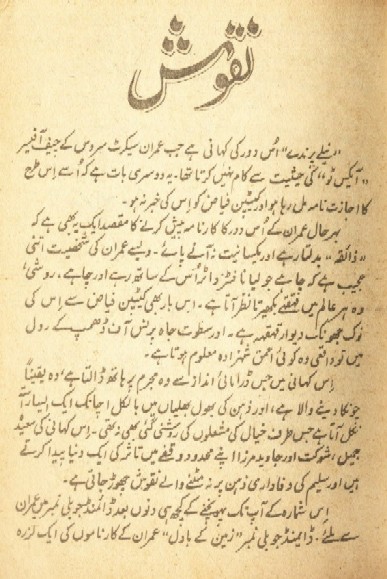 نقوش
"نیلے پرندے" اُس دور کی کہانی ہے جب عمران سیکرٹ سروس کے چیف آفیسر
"ایکس ٹو" کی حیثیت سے کام نہیں کرتا تھا۔ یہ دوسری بات ہے کہ اُسے اِس طرح
کا اجازت نامہ مل رہا ہو اور کیپٹن فیاض کو اس کی خبر نہ ہو۔
بہرحال عمران کے اُس دور کا کارنامہ پیش کرنے کا مقصد ایک یہ بھی ہے کہ
"ذائقہ" بدلتا رہے اور یکسانیت نہ آنے پائے۔ ویسے عمران کی شخصیت اتنی
عجیب ہے کہ چاہے جولیانا فٹز واٹر اُس کے ساتھ رہے اور چاہے، روشی؛
وہ ہر عالم میں قہقہے بکھیرتا نظر آتا ہے۔ اس بار بھی کیپٹن فیاض سے اِس کی
نوک جھونک دیوار قہقہہ ہے۔ اور سطوت جاہ پرنس آف ڈھمپ کے رول
میں تو واقعی وہ کوئی احمق شہزادہ معلوم ہوتا ہے۔
اِس کہانی میں جس ڈرامائی انداز سے وہ مجرم پر ہاتھ ڈالتا ہے، وہ یقیناً
چونکا دینے والا ہے، اور ذہن کی بھول بھلیاں میں بالکل اچانک ایک ایسا راستہ
نکل آتا ہے جس طرف خیال کی مشعلوں کی روشنی گئی بھی نہ تھی۔ اِس کہانی کی سعیدہ
جمیل، شوکت اور جاوید مرزا اپنے محدود وقفے میں تاثر کی ایک دنیا پیدا کرتے
ہیں اور سلیم کی وفاداری ذہن پر نہ مٹنے والے نقوش چھوڑ جاتی ہے۔
اِس شمارہ کے آپ تک پہونچنے کے کچھ ہی دنوں بعد ڈائمنڈ جوبلی نمبر میں عمران
سے ملئے۔ ڈائمنڈ جوبلی نمبر "زمین کے بادل" عمران کے کارناموں کی ایک لرزہ